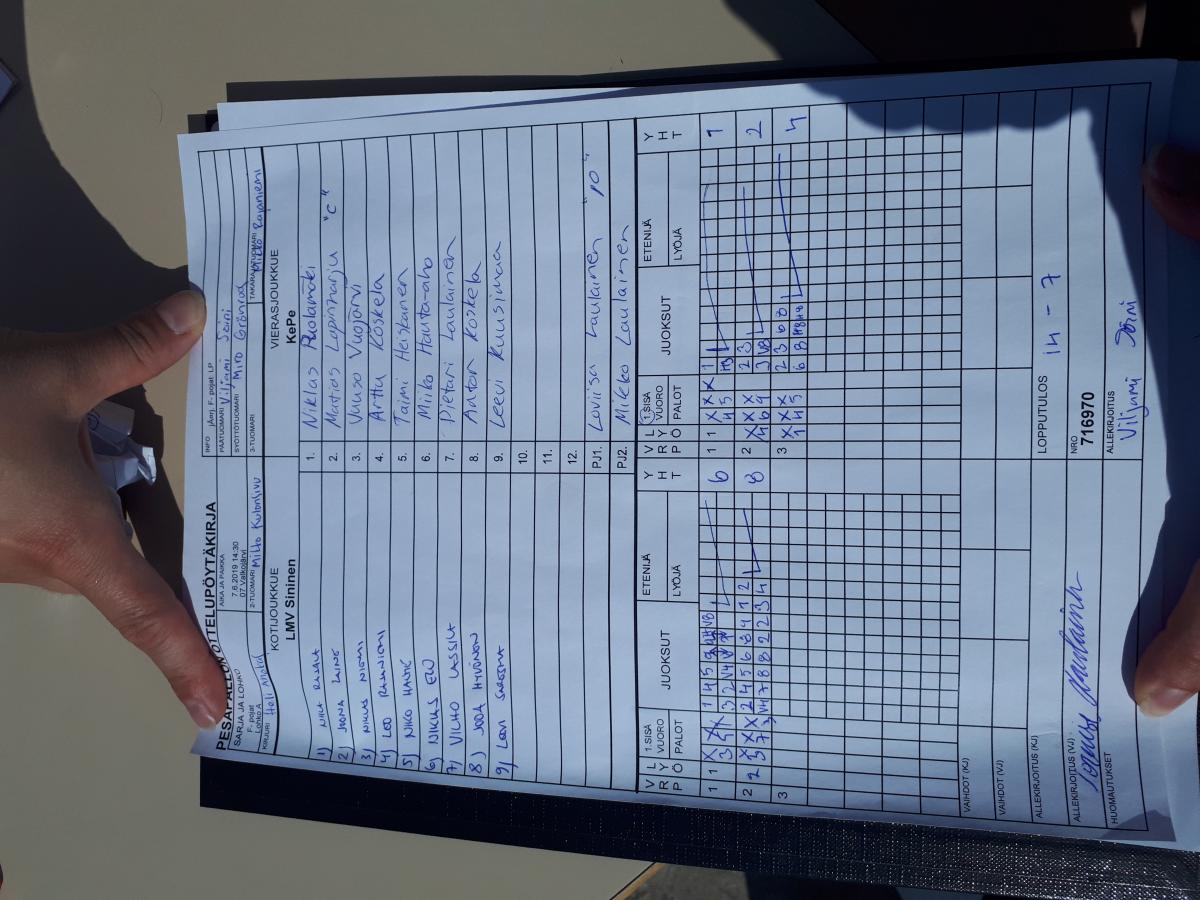 PESÄPALLON OTTELUPÖYTÄKIRJA
SARJA JA LOHKO
F- pojat
Lohko A
AIKA JA PAIKKA
7.6.2019 14:30
07.Valkojärvi
INFO jÄorj. F- pojat LP
PÄÄTUOMARI Viljami Soini
KIRJURI Heli Anatol
2-TUOMARI Mitto Kulonsivu
SYÖTTÖTUOMARI Miro Grönroos
3-TUOMARI
TAKARAJATUOMARI Mitto Rajaniemi
KOTIJOUKKUE
LMV Sininen
VIERASJOUKKUE
KePe
1) NIKA RAJALA
2) JOONA LAINE
3) NIKLAS NIEMI
4) LEO RAJANIEMI
5) NIKO
6) NIKLAS
7) VILHO LASSILA
8) JOOA HYVÖNEN
9) LENNI
1. Niklas Puolamäki
2. Matias Lopinharju "C"
3. Juuso Vuojärvi
4. Arttu Koskela
5. Taimi Heiskanen
6. Miiko Hauta-aho
7. Pietari Laulainen
8. Anton Koskela
9. Leevi Kuusimaa
10.
11.
12.
PJ1. Loviisa Laulainen "10"
PJ2. Mikko Laulainen
V R L Y Ö P 1.SISÄ VUORO PALOT JUOKSUT ETENIJÄ LYÖJÄ Y H T
1 1 X X X 1 4 5 6
2 2 X X X 2 4 5 6 8 4 1 2 8
3 7 3 7 8 8 2 2 3 4
3
V R L Y Ö P 1.SISÄ VUORO PALOT JUOKSUT ETENIJÄ LYÖJÄ Y H T
1 1 X X X 1 1
1 4 5
2 X X X X 2 3 2
4 6 9 3
3 X X X X 2 3 6 8 4
1 1 4 5 6 8
VAIHDOT (KJ)
VAIHDOT (VJ)
ALLEKIRJOITUS (KJ)
LOPPUTULOS 14 - 7
ALLEKIRJOITUS (VJ)
NRO
716970
HUOMAUTUKSET
ALLEKIRJOITUS
Viljami Soini